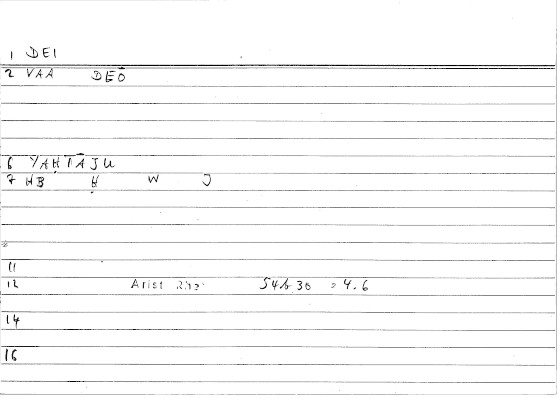 1 DEI
2 VAA DEŌ
6 YAḤTĀJU
7 HB Ḥ W J
11
12 Arist Rhet 54b30 = 4.6
14
16